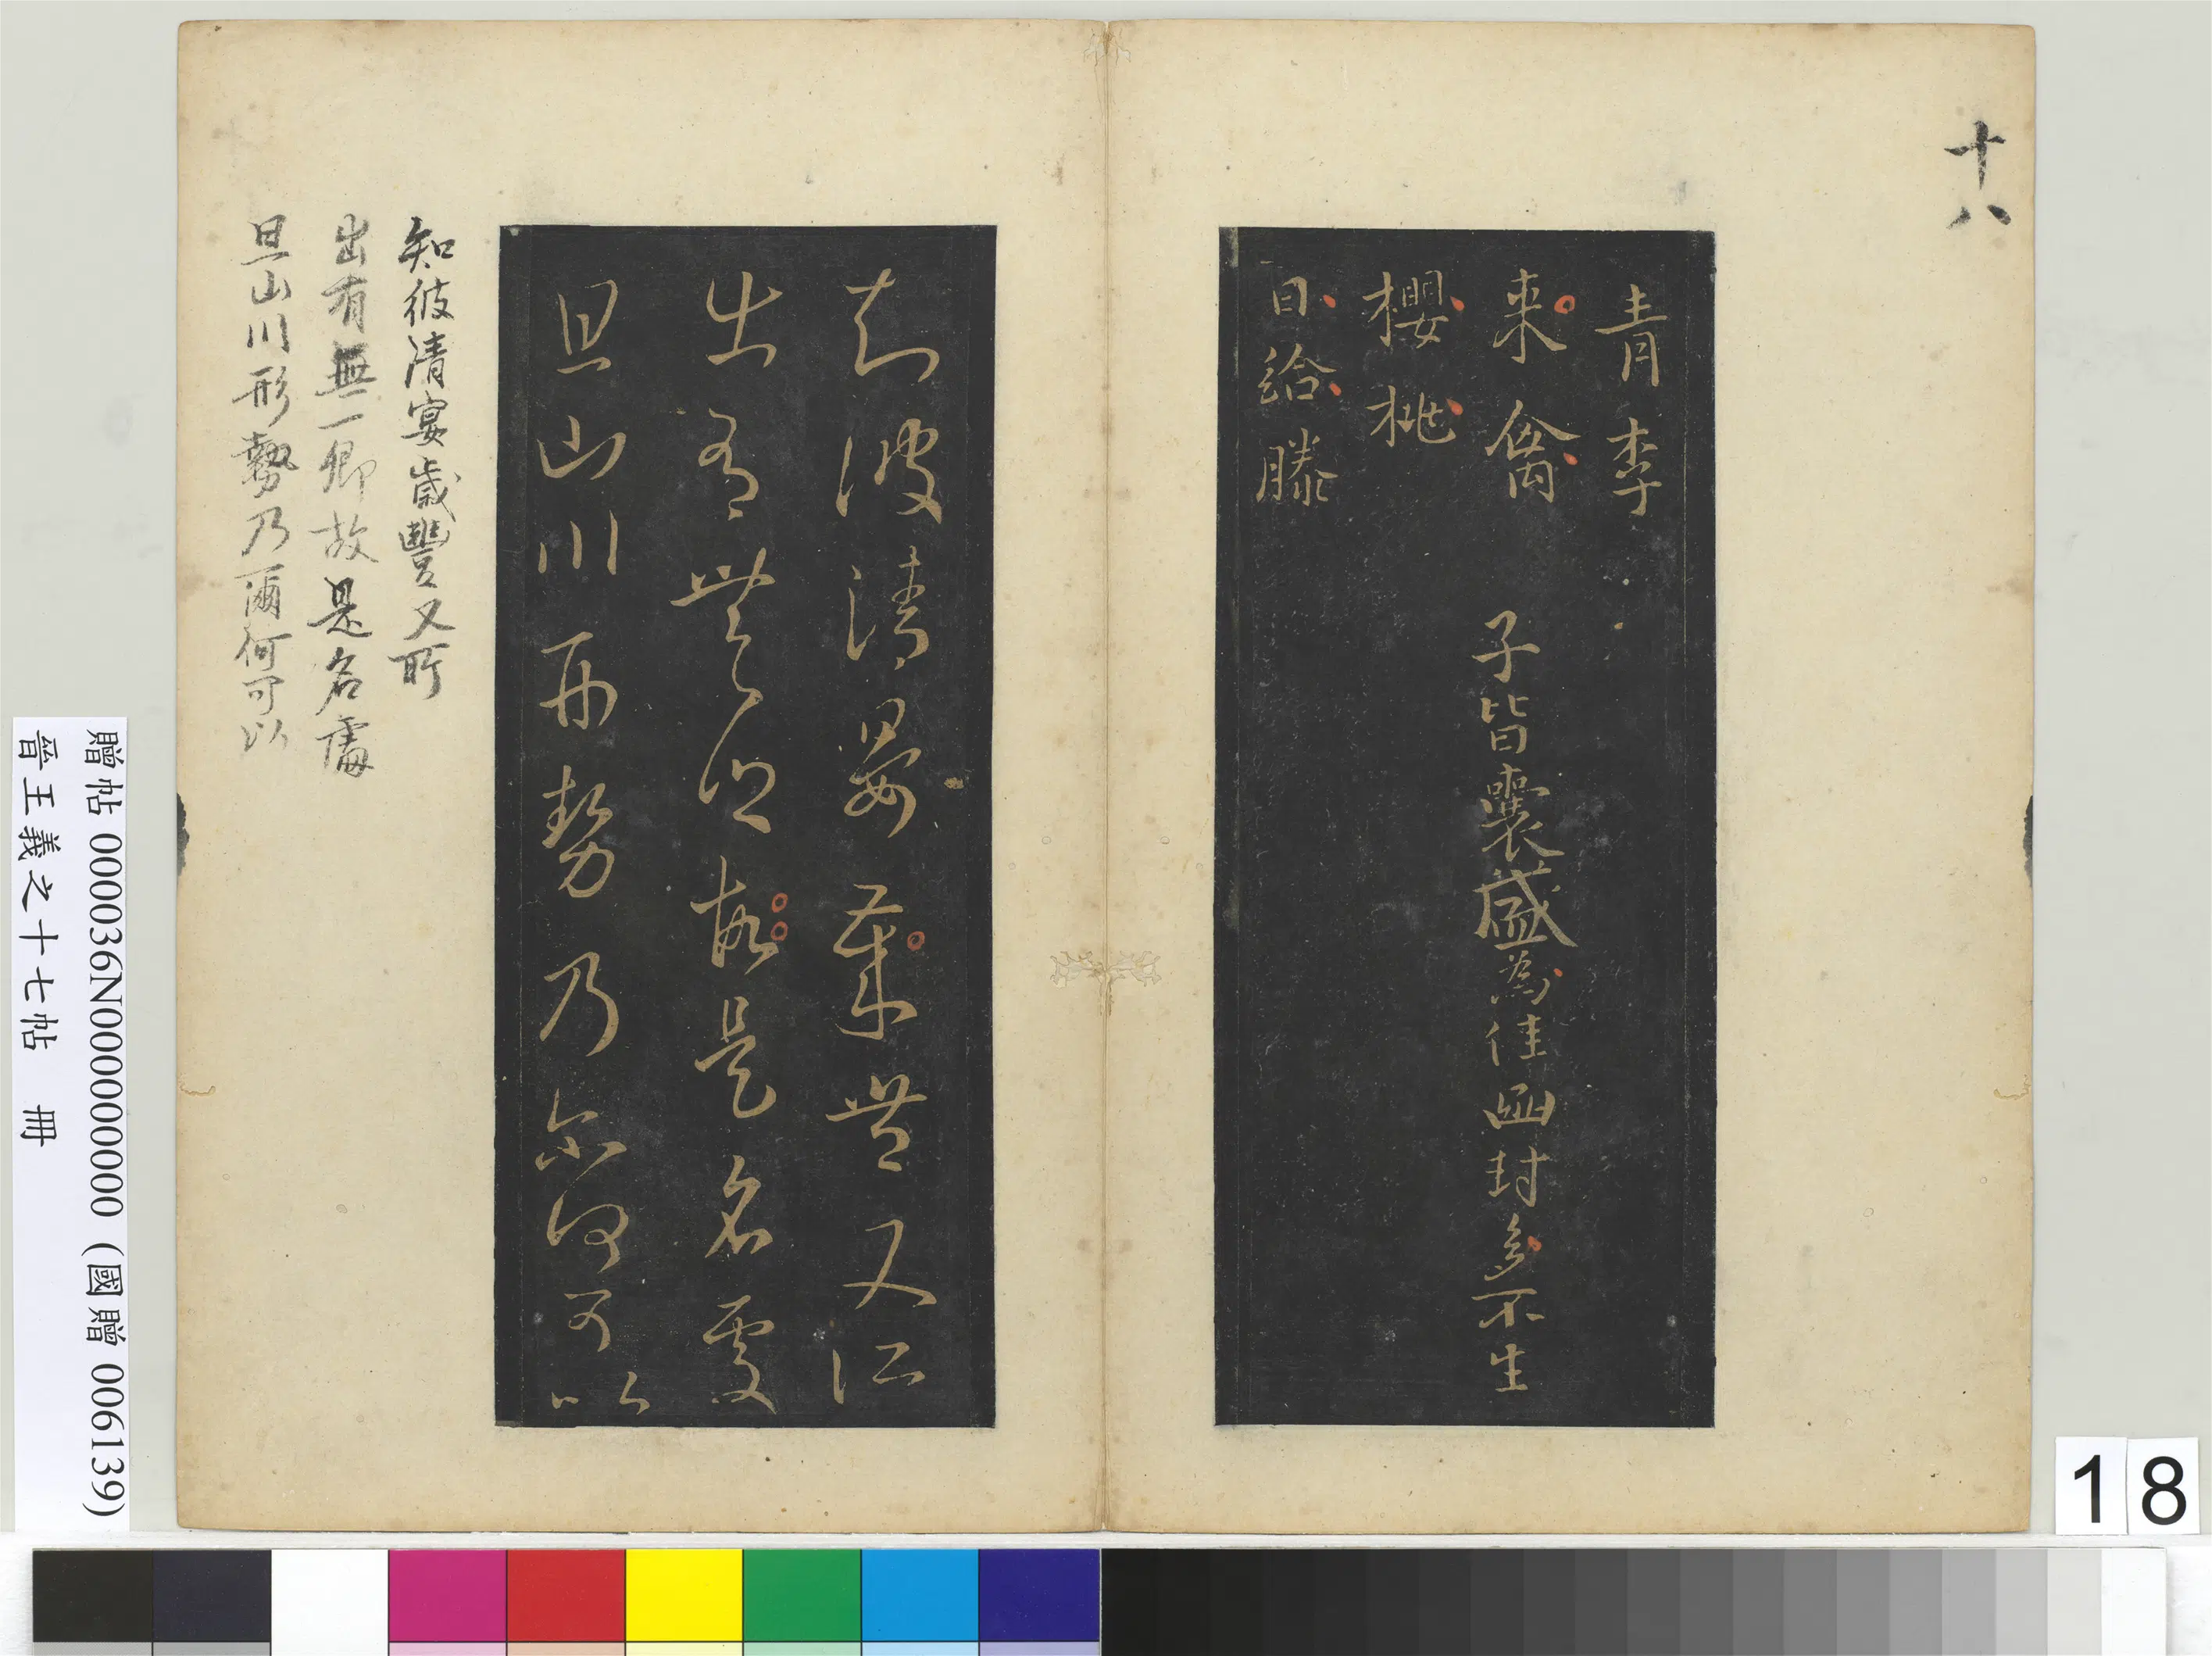 十八
青李
来禽 子皆囊盛為佳函封多不生
櫻桃
日給滕
知彼清晏歲豐又所
出有無鄉故是名處
且山川形勢乃尔何可以
知彼清宴歲豐又所
出有無一鄉故是名處
且山川形勢乃爾何可以
贈帖 000036N000000000 (國贈 006139)
晉王羲之十七帖 冊
18